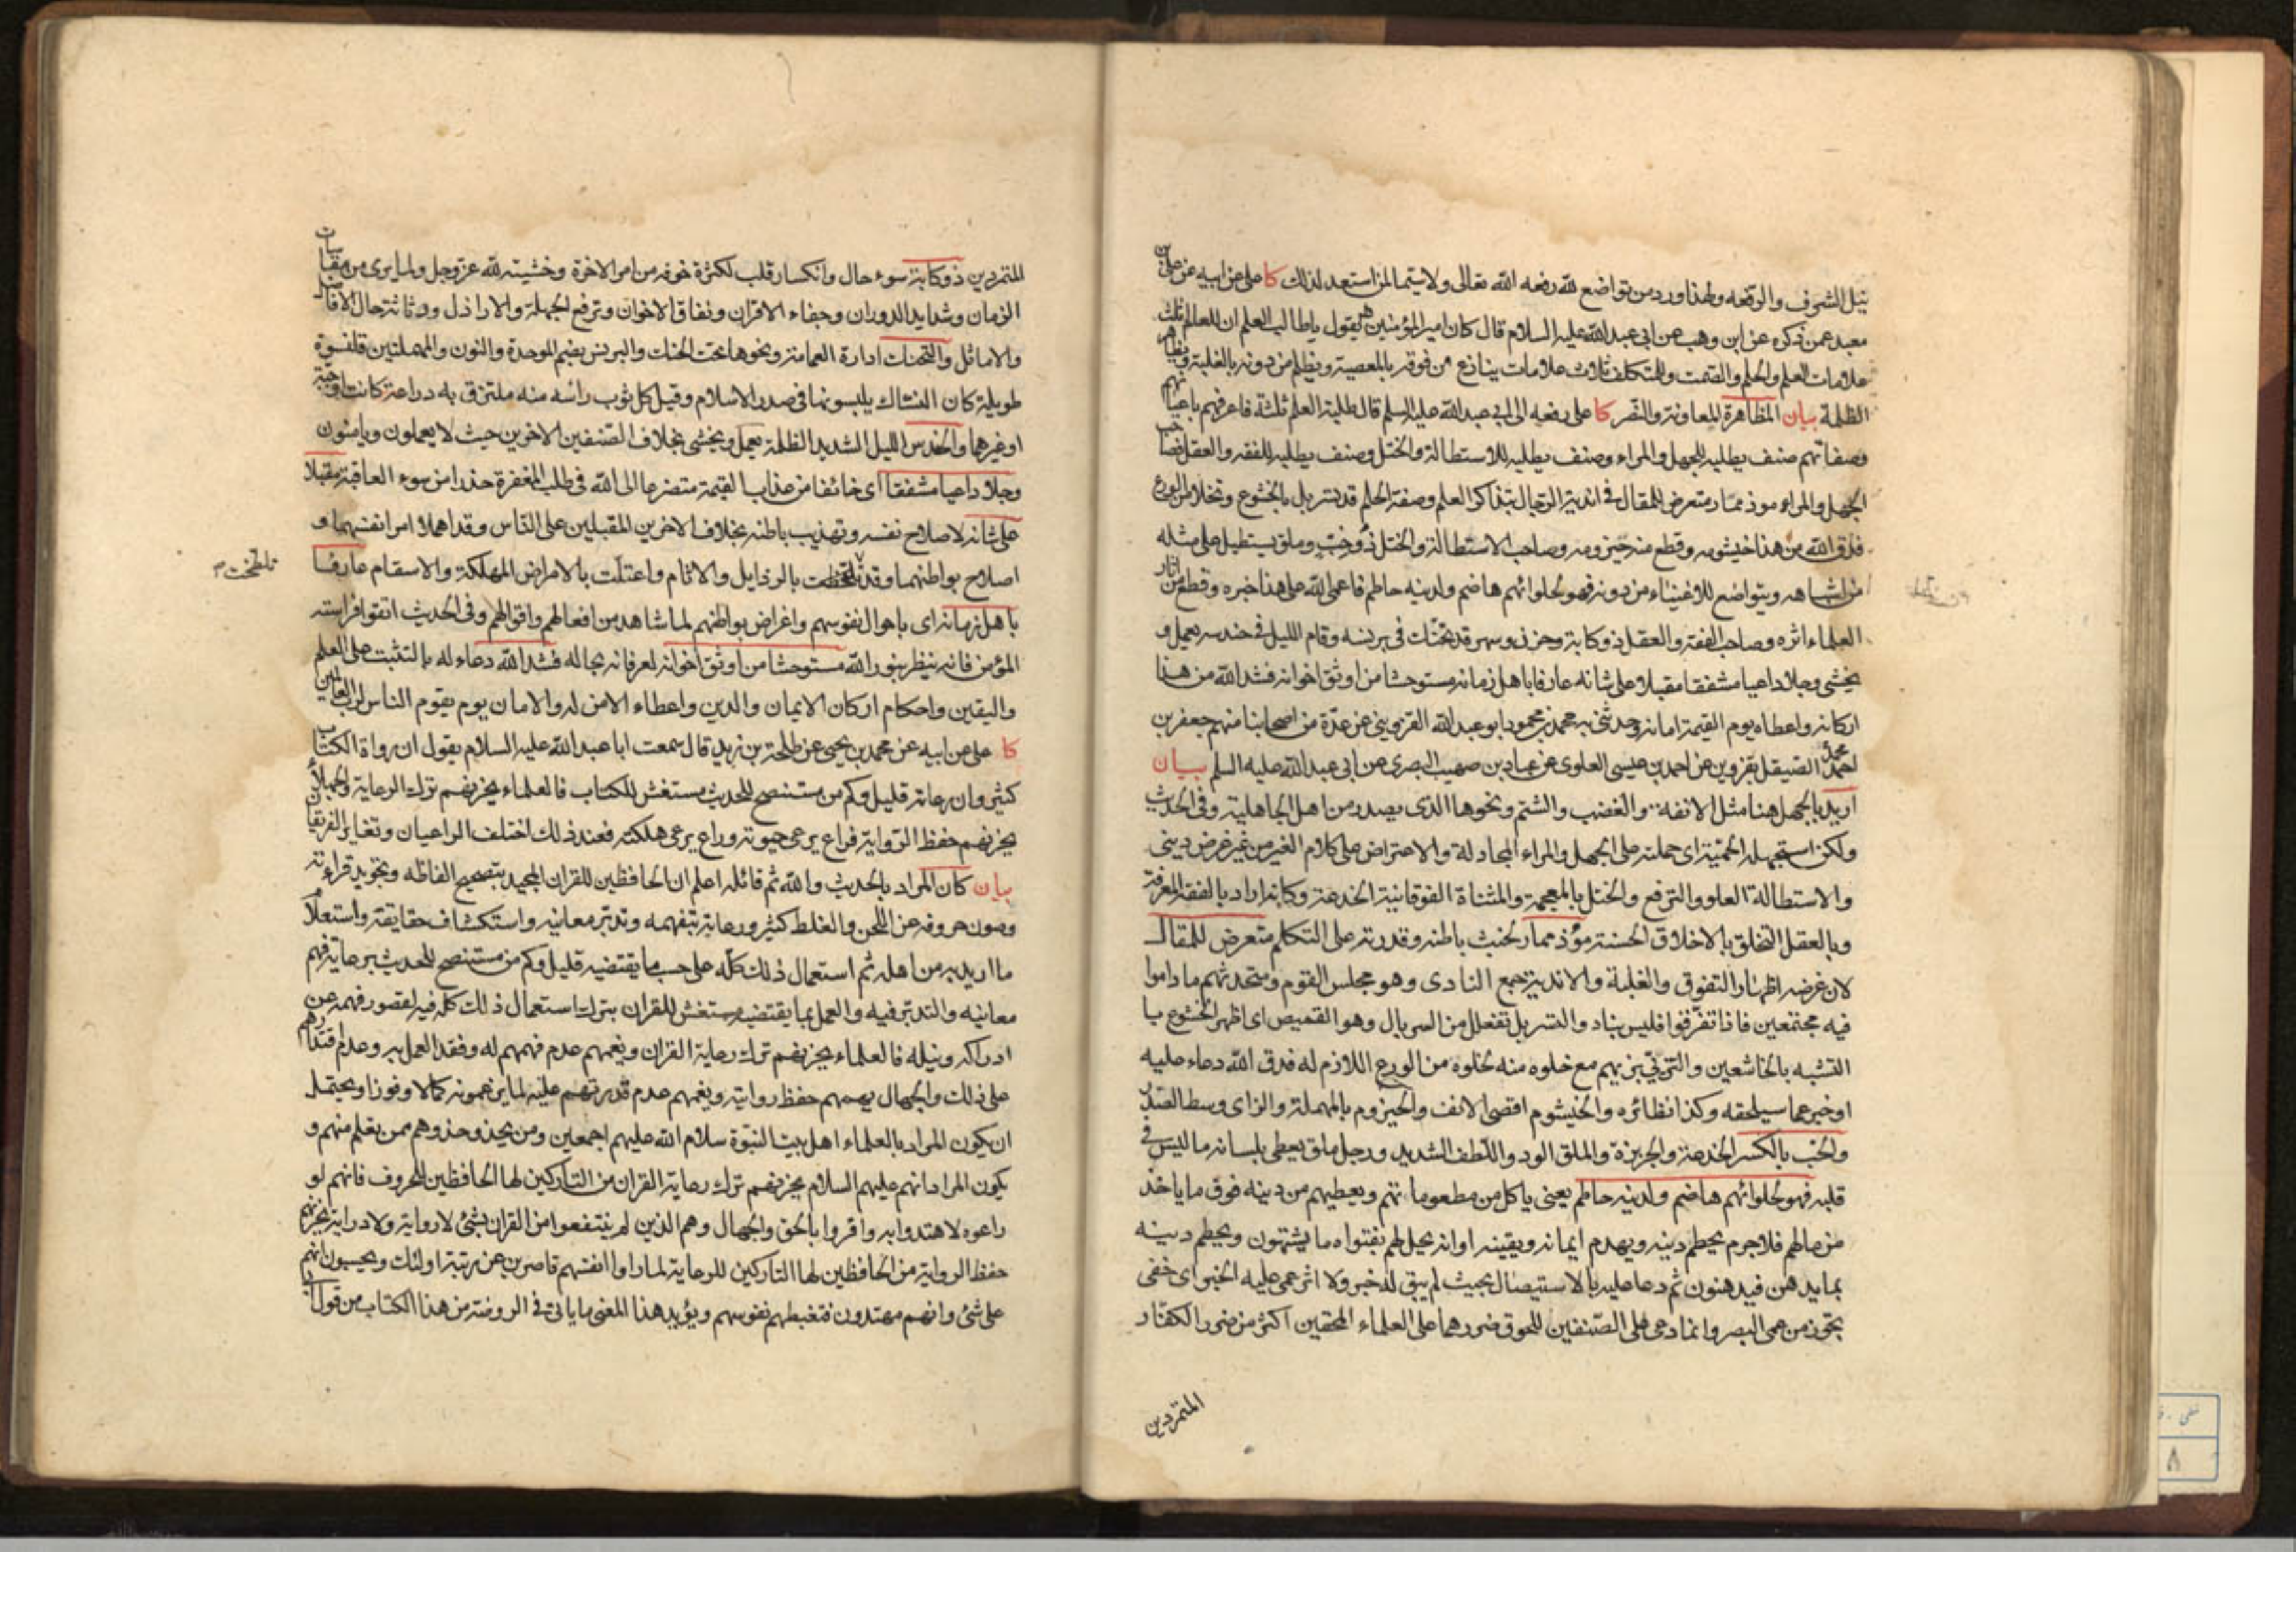 نيل الشرف والرفعه ولهذا ورد من تواضع لله رفعه الله تعالى ولا سيما لمن استعد لذلك كا على عن ابيه عن على بن
معبد عمن ذكره عن ابن وهب عن ابى عبد الله عليه السلام قال كان امير المؤمنين يقول يا طالب العلم ان للعالم ثلث
علامات العلم والحلم والصمت وللمتكلف ثلاث علامات ينازع من فوقه بالمعصية ويظلم من دونه بالغلبة ويظاهر
الظلمة بيان المظاهرة المعاونة والنصر كا على رفعه الى ابى عبد الله عليه السلم قال طلبة العلم ثلثة فاعرفهم باعيانهم
وصفاتهم صنف يطلبه للجهل والمراء وصنف يطلبه للاستطالة والختل وصنف يطلبه للفقه والعقل فصاحب
الجهل والمراء موذ ممار متعرض للمقال فى اندية الرجال بتذاكر العلم وصفة الحلم قد تسربل بالخشوع وتخلا من الورع
فدق الله من هذا خيشومه وقطع منه حيزومه وصاحب الاستطالة والختل ذو خب وملق يستطيل على مثله
من اشباهه ويتواضع للاغنياء من دونه فهو لحلوائهم هاضم ولدينه حاطم فاعمى الله على هذا خبره وقطع من اثار
العلماء اثره وصاحب الفقه والعقل ذو كابة وحزن وسهر قد تحنك فى برنسه وقام الليل فى حندسه يعمل و
يخشى وجلا داعيا مشفقا مقبلا على شانه عارفا باهل زمانه مستوحشا من اوثق اخوانه فشد الله من هذا
اركانه واعطاه يوم القيمة امانه وحدثنى به محمد بن محمود ابو عبد الله القزوينى عن عدة من اصحابنا منهم جعفر بن
محمد الصيقل بقزوين عن احمد بن عيسى العلوى عن عباد بن صهيب البصرى عن ابى عبد الله عليه السلم بيان
اريد بالجهل هنا مثل الانفه والغضب والشتم ونحوها الذى يصدر من اهل الجاهلية وفى الحديث
ولكن استجهله الحمية اى حملته على الجهل والمراء المجادلة والاعتراض على كلام الغير من غير غرض دينى
والاستطالة العلو والترفع والختل بالمعجمة والمثناة الفوقانية الخدعة وكانه اراد بالفقه المعرفة
وبالعقل التخلق بالاخلاق الحسنة مؤذ ممار لخبث باطنه وقدرته على التكلم متعرض للمقال
لان غرضه اظهار التفوق والغلبة والاندية جمع النادى وهو مجلس القوم ومتحدثهم ما داموا
فيه مجتمعين فاذا تفرقوا فليس بناد والتسربل تفعلل من السربال وهو القميص اى اظهر الخشوع
التشبه بالخاشعين والتزيى بزيهم مع خلوه منه لخلوه من الورع اللازم له فدق الله دعاء عليه
او خبر عما سيلحقه وكذا نظائره والخيشوم اقصى الانف والحيزوم بالمهملة والزاى وسط الصدر
والخب بالكسر الخدعة والجربزة والملق الود واللطف الشديد ورجل ملق يعطى بلسانه ما ليس فى
قلبه فهو لحلوائهم هاضم ولدينه حاطم يعنى ياكل من مطعوماتهم ويعطيهم من دينه فوق ما ياخذ
من مالهم فلا جرم يحطم دينه ويهدم ايمانه ويقينه او انه يحيل لهم بفتواه ما يشتهون ويحطم دينه
بما يدهن فيدهنون ثم دعا عليه بالاستيصال بحيث لم يبق له خبر ولا اثر عمى عليه الخبر اى خفى
تجوز من عمى البصر وانما دعى على الصنفين للحوق ضررهما على العلماء المحقين اكثر من ضرر الكفار
المتمردين
المتمردين ذو كابة سوء حال وانكسار قلب لكثرة خوفه من امر الاخرة وخشيته لله عز وجل ولما يرى من مقتبات
الزمان وشدايد الدوران وجفاء الاقران ونفاق الاخوان وترفع الجهلة والاراذل ورثاثة حال الافاضل
والاماثل والتحنك ادارة العمامة ونحوها تحت الحنك والبرنس بضم الموحدة والنون والمهملتين قلنسوة
طويلة كان النساك يلبسونها فى صدر الاسلام وقيل كل ثوب راسه منه ملتزق به دراعة كانت او جبة
او غيرهما والحندس الليل الشديد الظلمة يعمل ويخشى بخلاف الصنفين الاخرين حيث لا يعملون ويامنون
وجلا داعيا مشفقا اى خائفا من عذاب القيمة متضرعا الى الله فى طلب المغفرة حذرا من سوء العاقبة مقبلا
على شانه لاصلاح نفسه وتهذيب باطنه بخلاف الاخرين المقبلين على الناس وقد اهملا امر انفسهما و
اصلاح بواطنهما وقد تلطخت بالرذايل والاثام واعتلت بالامراض المهلكة والاسقام عارفا
تلطخت
باهل زمانه اى باحوال نفوسهم واغراض بواطنهم لما شاهد من افعالهم واقوالهم وفى الحديث اتقوا فراسة
المؤمن فانه ينظر بنور الله مستوحشا من اوثق اخوانه لعرفانه بحاله فشد الله دعاء له بالتثبت على العلم
واليقين واحكام اركان الايمان والدين واعطاء الامن له والامان يوم يقوم الناس لرب العالمين
كا على عن ابيه عن محمد بن يحيى عن طلحة بن زيد قال سمعت ابا عبد الله عليه السلام يقول ان رواة الكتاب
كثير وان رعاته قليل وكم من مستنصح للحديث مستغش للكتاب فالعلماء يحزنهم ترك الرعاية والجهال
يحزنهم حفظ الرواية فراع يرعى حيوته وراع يرعى هلكته فعند ذلك اختلف الراعيان وتغاير الفريقان
بيان كان المراد بالحديث والله ثم قائله اعلم ان الحافظين للقران المجيد بتصحيح الفاظه وتجويد قراءته
وصون حروفه عن اللحن والغلط كثير ورعاية بتفهمه وتدبر معانيه واستكشاف حقايقه واستعلام
ما اريد به من اهله ثم استعمال ذلك كله على حسب ما يقتضيه قليل وكم من مستنصح للحديث برعاية فهم
معانيه والتدبر فيه والعمل بما يقتضيه مستغش للقران بترك استعمال ذلك كله فيه لقصور فهمه عن
ادراكه ونيله فالعلماء يحزنهم ترك رعاية القران ويغمهم عدم فهمهم له وفقد العمل به وعدم اقتدارهم
على ذلك والجهال يهمهم حفظ روايته ويغمهم عدم قدرتهم عليه لما يزعمونه كمالا وفوزا ويحتمل
ان يكون المراد بالعلماء اهل بيت النبوة سلام الله عليهم اجمعين ومن يحذو حذوهم ممن تعلم منهم و
يكون المراد انهم عليهم السلام يحزنهم ترك رعاية القران من التاركين لها الحافظين للحروف فانهم لو
راعوه لاهتدوا به واقروا بالحق والجهال وهم الذين لم ينتفعوا من القران بشئ لا رواية ولا دراية يحزنهم
حفظ الرواية من الحافظين لها التاركين للرعاية لما راوا انفسهم قاصرين عن رتبة اولئك ويحسبون انهم
على شئ وانهم مهتدون فتغبطهم نفوسهم ويؤيد هذا المعنى ما ياتى فى الروضة من هذا الكتاب من قول
٨